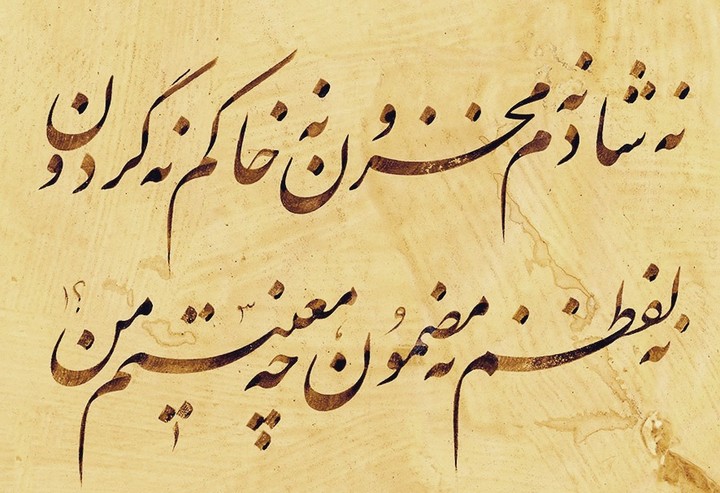 نه شادم نه محزون نه خاکم نه گردون
نه لفظم نه مضمون چه معنیستم من؟!